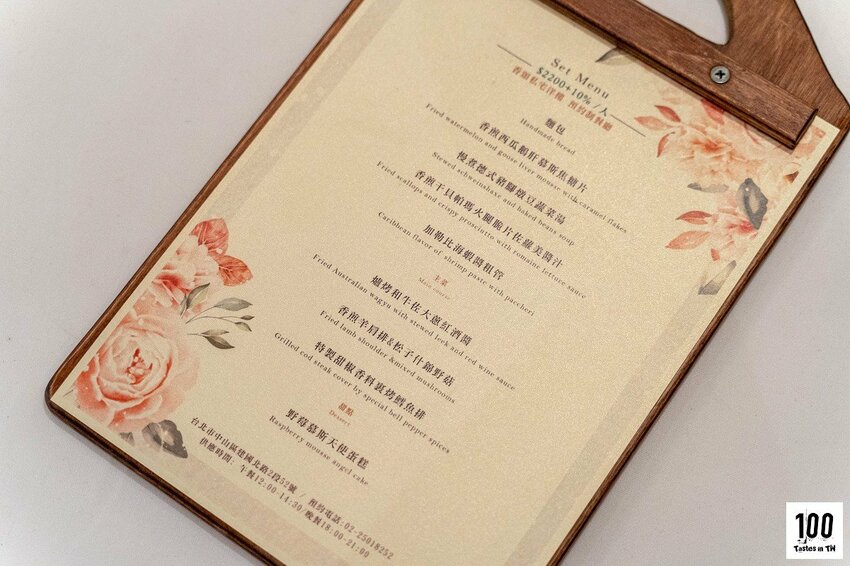 Set Menu
$2200+10%/人
香頌私宅洋樓 預約制餐廳
麵包
Handmade bread
香煎西瓜鵝肝慕斯焦糖片
Fried watermelon and goose liver mousse with caramel flakes
慢煮德式豬腳燉豆蔬菜湯
Stewed schweinshaxe and baked beans soup
香煎干貝帕瑪火腿脆片佐蘿美醬汁
Fried scallops and crispy prosciutto with romaine lettuce sauce
加勒比海蝦醬粗管
Caribbean flavor of shrimp paste with paccheri
主菜
Main course
爐烤和牛佐大蔥紅酒醬
Fried Australian wagyu with stewed leek and red wine sauce
香煎羊肩排&松子什錦野菇
Fried lamb shoulder &mixed mushrooms
特製甜椒香料裹烤鱈魚排
Grilled cod steak cover by special bell pepper spices
甜點
Dessert
野莓慕斯天使蛋糕
Raspberry mousse angel cake
台北市中山區建國北路2段52號 / 預約電話:02-25018252
供應時間: 午餐12:00-14:30/晚餐18:00-21:00
100
Tastes in TW